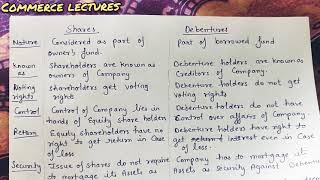 COMMERCE LECTURES
Shares Debentures
Nature Considered as part of Part of borrowed fund
owner's fund.
Known as Shareholders are known as Debenture holders are known as
owners of Company Creditors of Company.
Voting rights Shareholders get voting Debenture holders do not get
rights voting right
Control Control of Company lies in Debenture holders do not have
hands of Equity share holders Control over affairs of Company
Return Equity shareholders have no Debenture holders have right to
right to get return in Case get return interest even in Case
of loss. of loss
Security Issue of shares do not require Company has to mortgage it
to mortgage its Assets as Assets as Security Against Deben